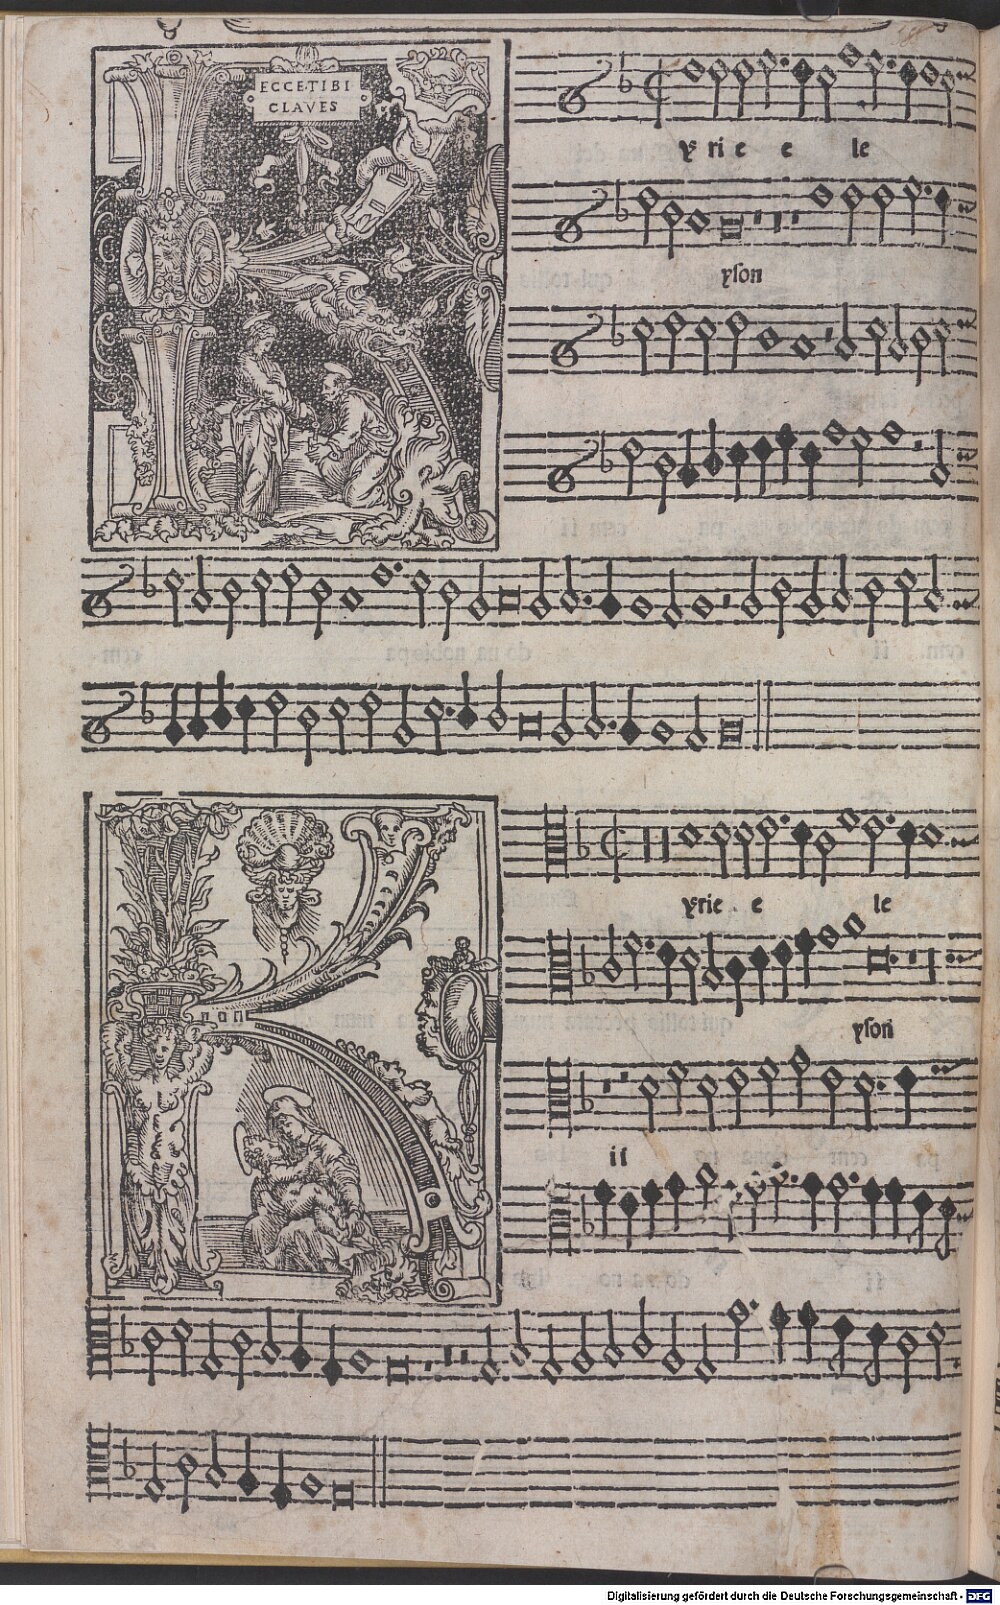 ECCE TIBI
CLAVES
yri e e le
yson
yrie e le
yson
ii
Digitalisierung gefördert durch die Deutsche Forschungsgemeinschaft - DFG